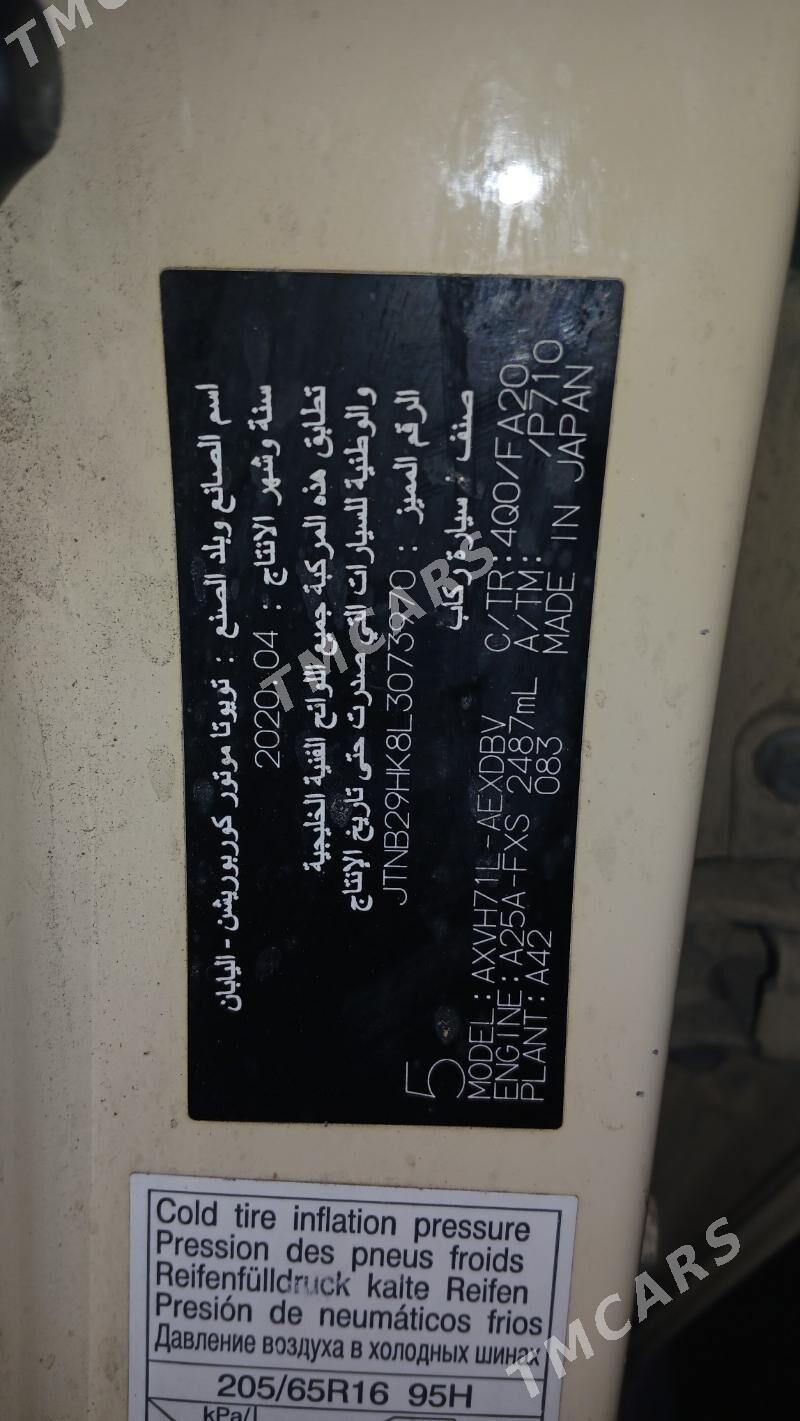 اسم الصانع وبلد الصنع : تويوتا موتور كوربوريشن - اليابان
سنة وشهر الانتاج : 2020.04
تطابق هذه المركبة جميع اللوائح الفنية الخليجية
والوطنية للسيارات التي صدرت حتى تاريخ الإنتاج
الرقم المميز : JTNB29HK8L3073970
صنف : سيارة ركاب
5
MODEL:AXVH71L-AEXDBV C/TR:4Q0/FA20
ENGINE:A25A-FXS 2487mL A/TM: /P710
PLANT:A42 083 MADE IN JAPAN
Cold tire inflation pressure
Pression des pneus froids
Reifenfülldruck kalte Reifen
Presión de neumáticos frios
Давление воздуха в холодных шинах
205/65R16 95H
kPa/
TMCARS
TMCARS
TMCARS